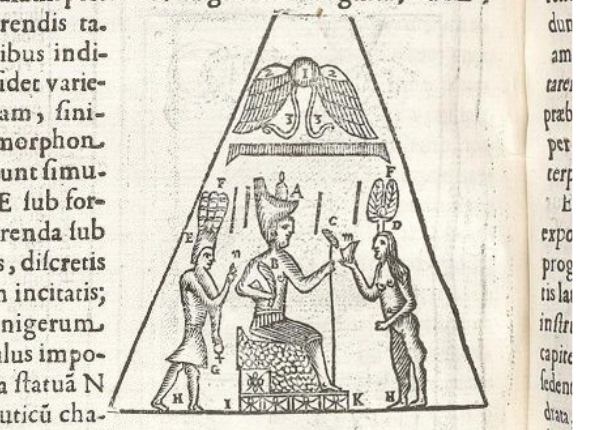 rendis ta-
ibus indi-
idet varie-
am, sini-
morphon
unt simu-
E sub for-
renda sub
s, discretis
n incitatis;
nigerum
ulus impo-
a statuā N
uticū cha-
2 1 2
3 3
F F
A
E C m D
n
B
G
H I K H
dun
am
tarer
præb
per
terp
E
expo
prog
tis lau
instru
capite
sedent
drata